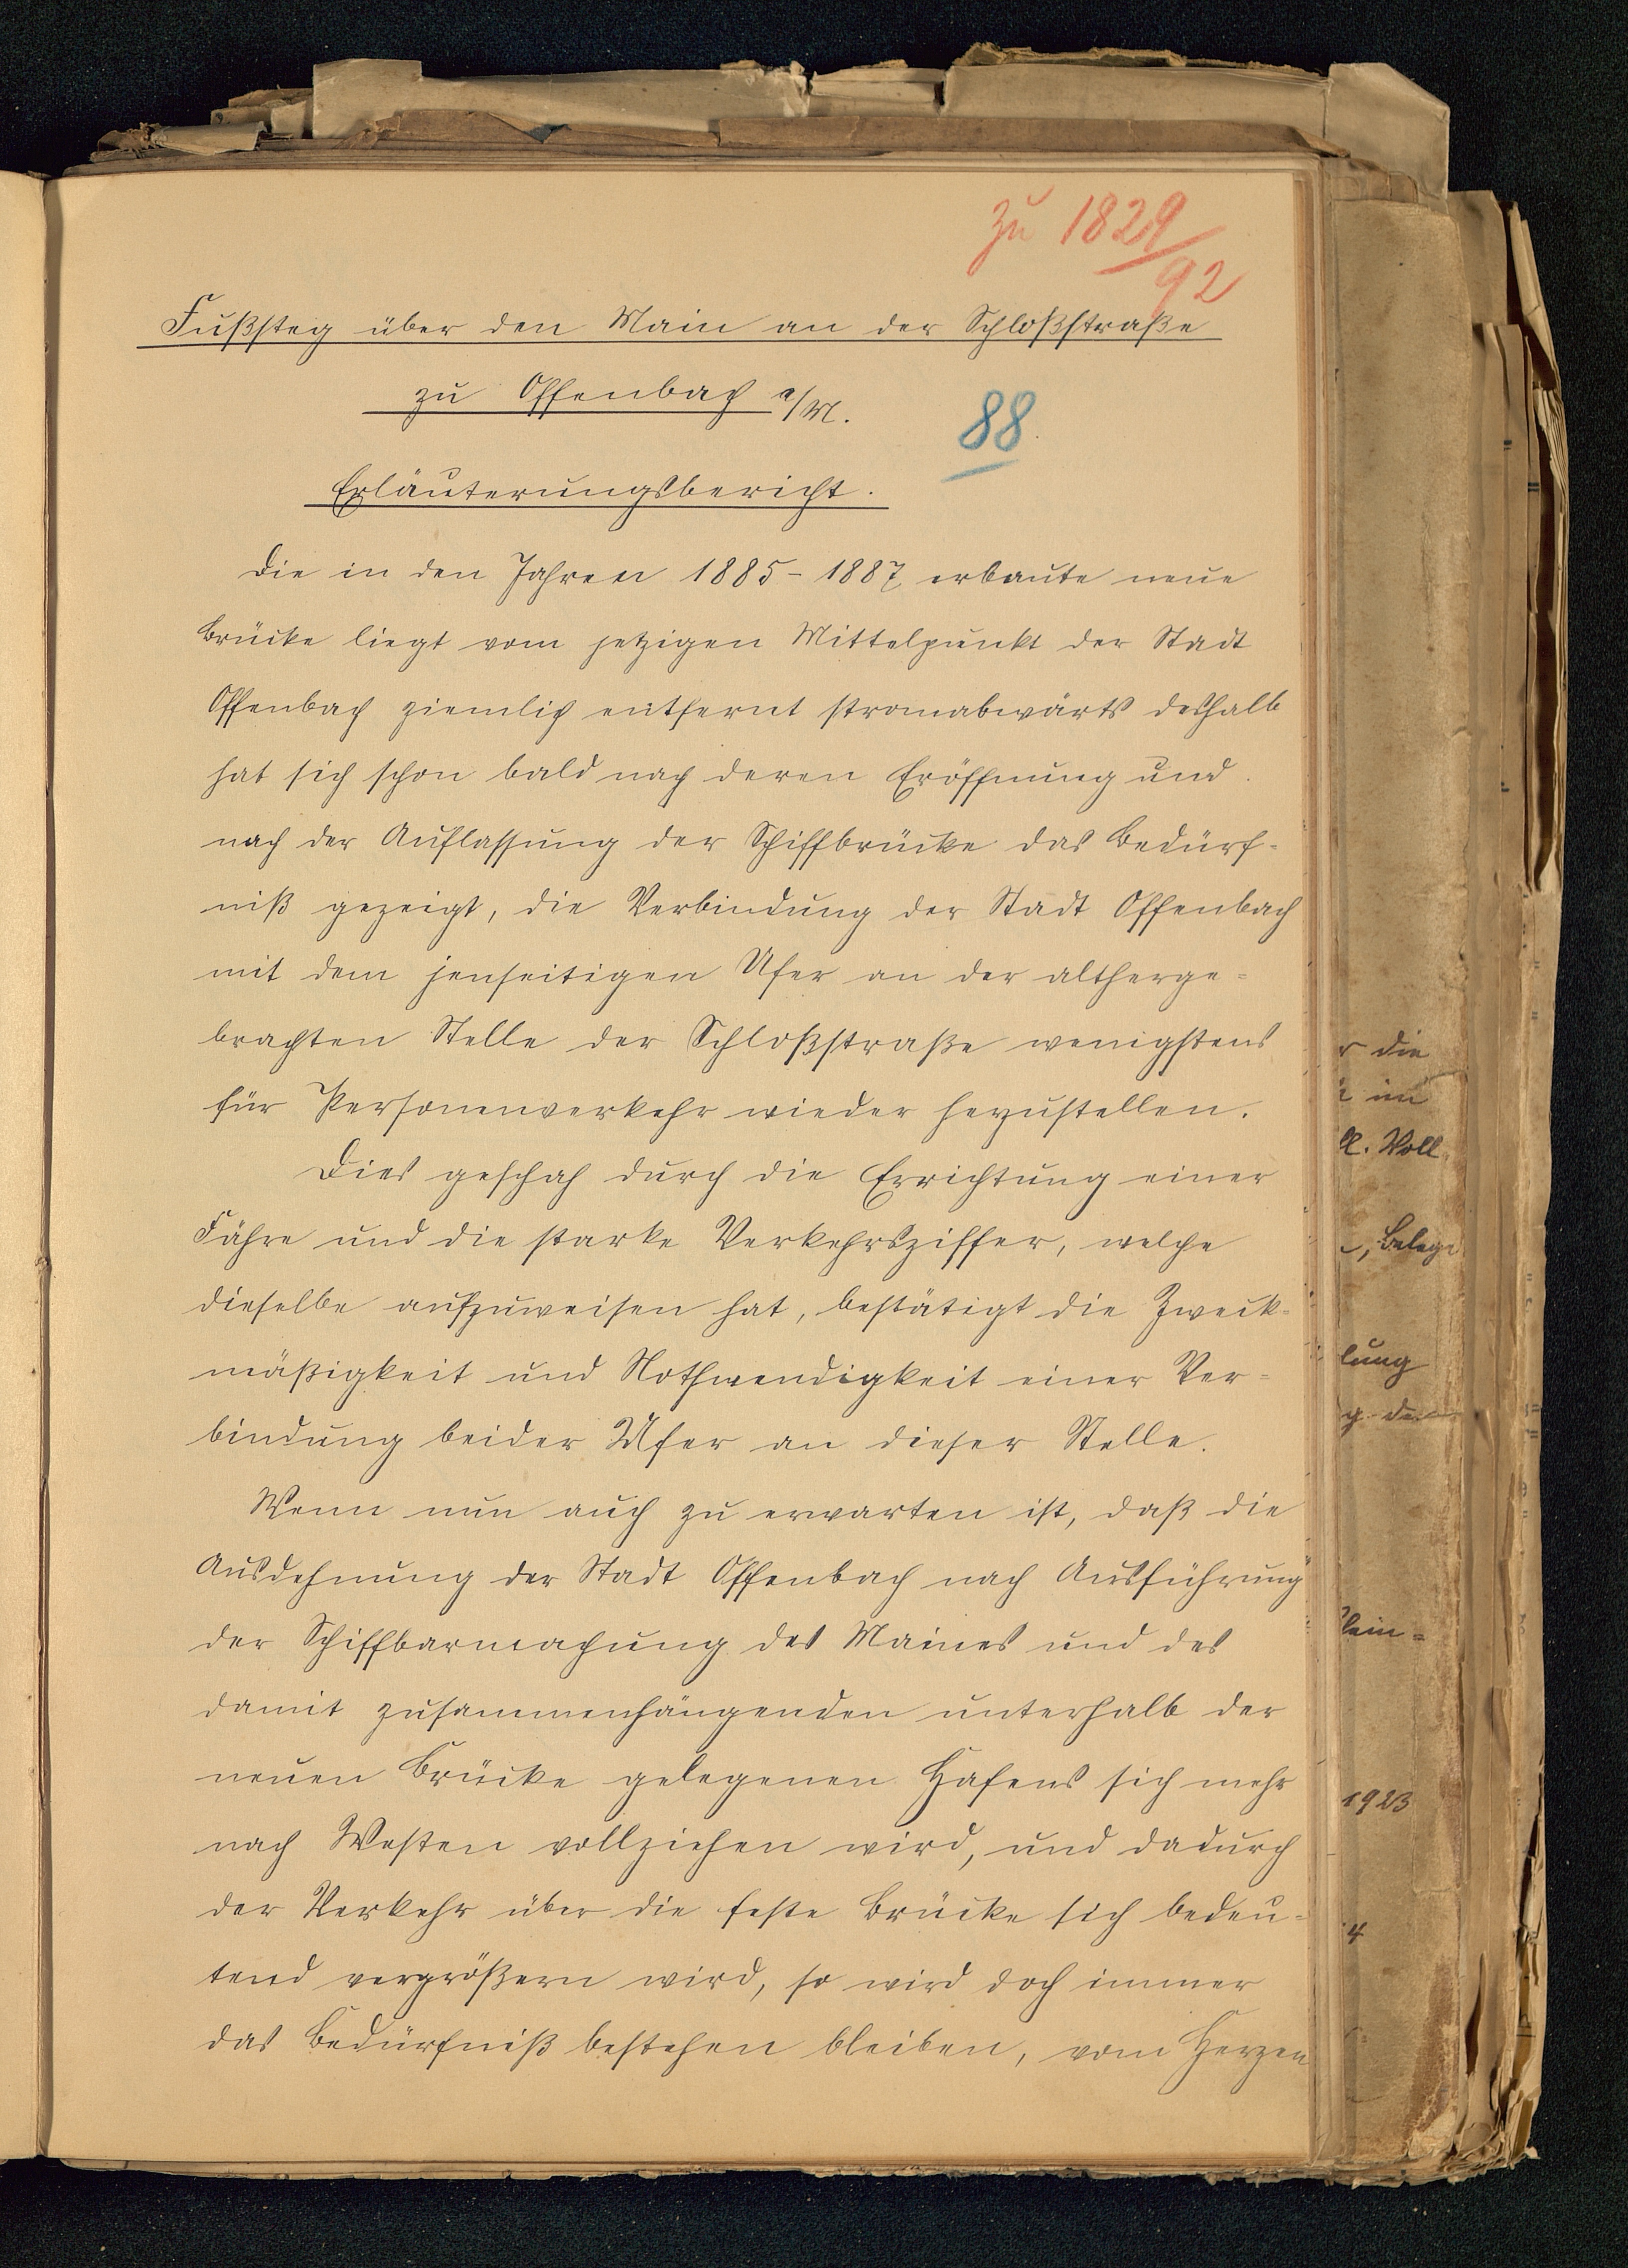 zu 1829/92
Fußsteg über den Main an der Schloßstraße
zu Offenbach a/M.
88
Erläuterungsbericht.
Die in den Jahren 1885-1887 erbaute neue
Brücke liegt vom jetzigen Mittelpunkt der Stadt
Offenbach ziemlich entfernt stromabwärts deshalb
hat sich schon bald nach deren Eröffnung und
nach der Auflassung der Schiffbrücke das Bedürf-
niß gezeigt, die Verbindung der Stadt Offenbach
mit dem jenseitigen Ufer an der altherge-
brachten Stelle der Schloßstraße wenigstens
für Personenverkehr wieder herzustellen.
Dies geschah durch die Errichtung einer
Fähre und die starke Verkehrsziffer, welche
dieselbe aufzuweisen hat, bestätigt die Zweck-
mäßigkeit und Nothwendigkeit einer Ver-
bindung beider Ufer an dieser Stelle.
Wenn nun auch zu erwarten ist, daß die
Ausdehnung der Stadt Offenbach nach Ausführung
der Schiffbarmachung des Maines und des
damit zusammenhängenden unterhalb der
neuen Brücke gelegenen Hafens sich mehr
nach Westen vollziehen wird, und dadurch
der Verkehr über die feste Brücke sich bedeu-
tend vergrößern wird, so wird doch immer
das Bedürfniß bestehen bleiben, vom Herzen
die
im
Voll
Belege
lung
1923
4